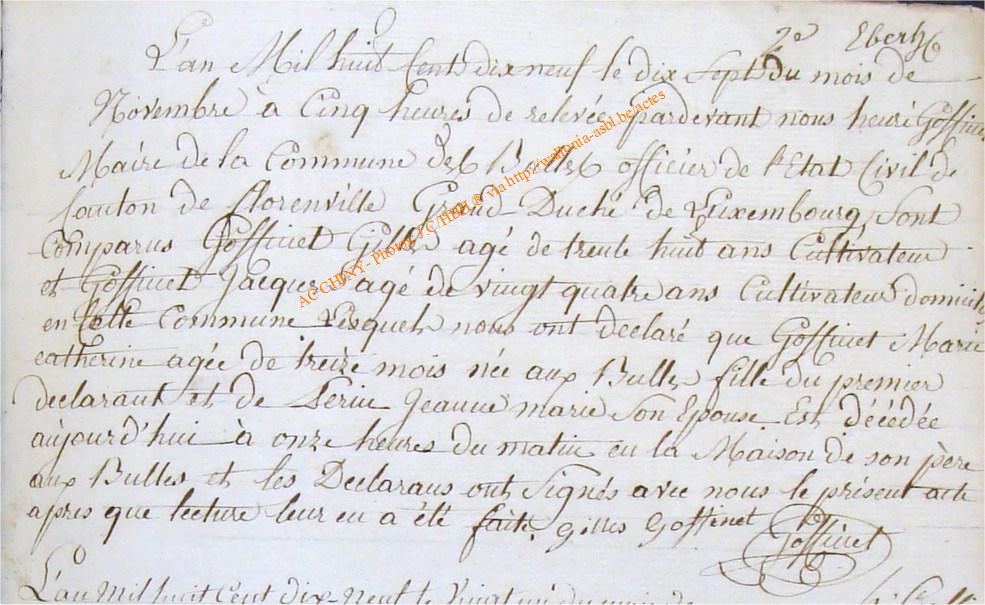 2e Eberh
L'an Mil huit Cent dix neuf le dix Sept du mois de
Novembre à Cinq heures de relevée pardevant nous henri Goffinet
Maire de la Commune des Bulles officier de l'Etat Civil de
Canton de florenville Grand-Duché de Luxembourg, sont
Comparus Goffinet Gilles agé de trente huit ans Cultivateur
et Goffinet Jacques agé de vingt quatre ans Cultivateur domicilié
en Cette Commune Lesquels nous ont declaré que Goffinet Marie
catherine agée de treize mois née aux Bulles fille du premier
declarant et de Jeanne marie Son Epouse Est décédée
aujourd'hui à onze heures du matin en la Maison de son père
aux Bulles et les Declarans ont Signés avec nous le présent acte
apres que lecture leur en a été faite. gilles goffinet Goffinet
L'an Mil huit Cent dix-neuf le Vingt un du mois de
ACCHINY - Photos FC/HBH © via http://wallonia-asbl.be/actes